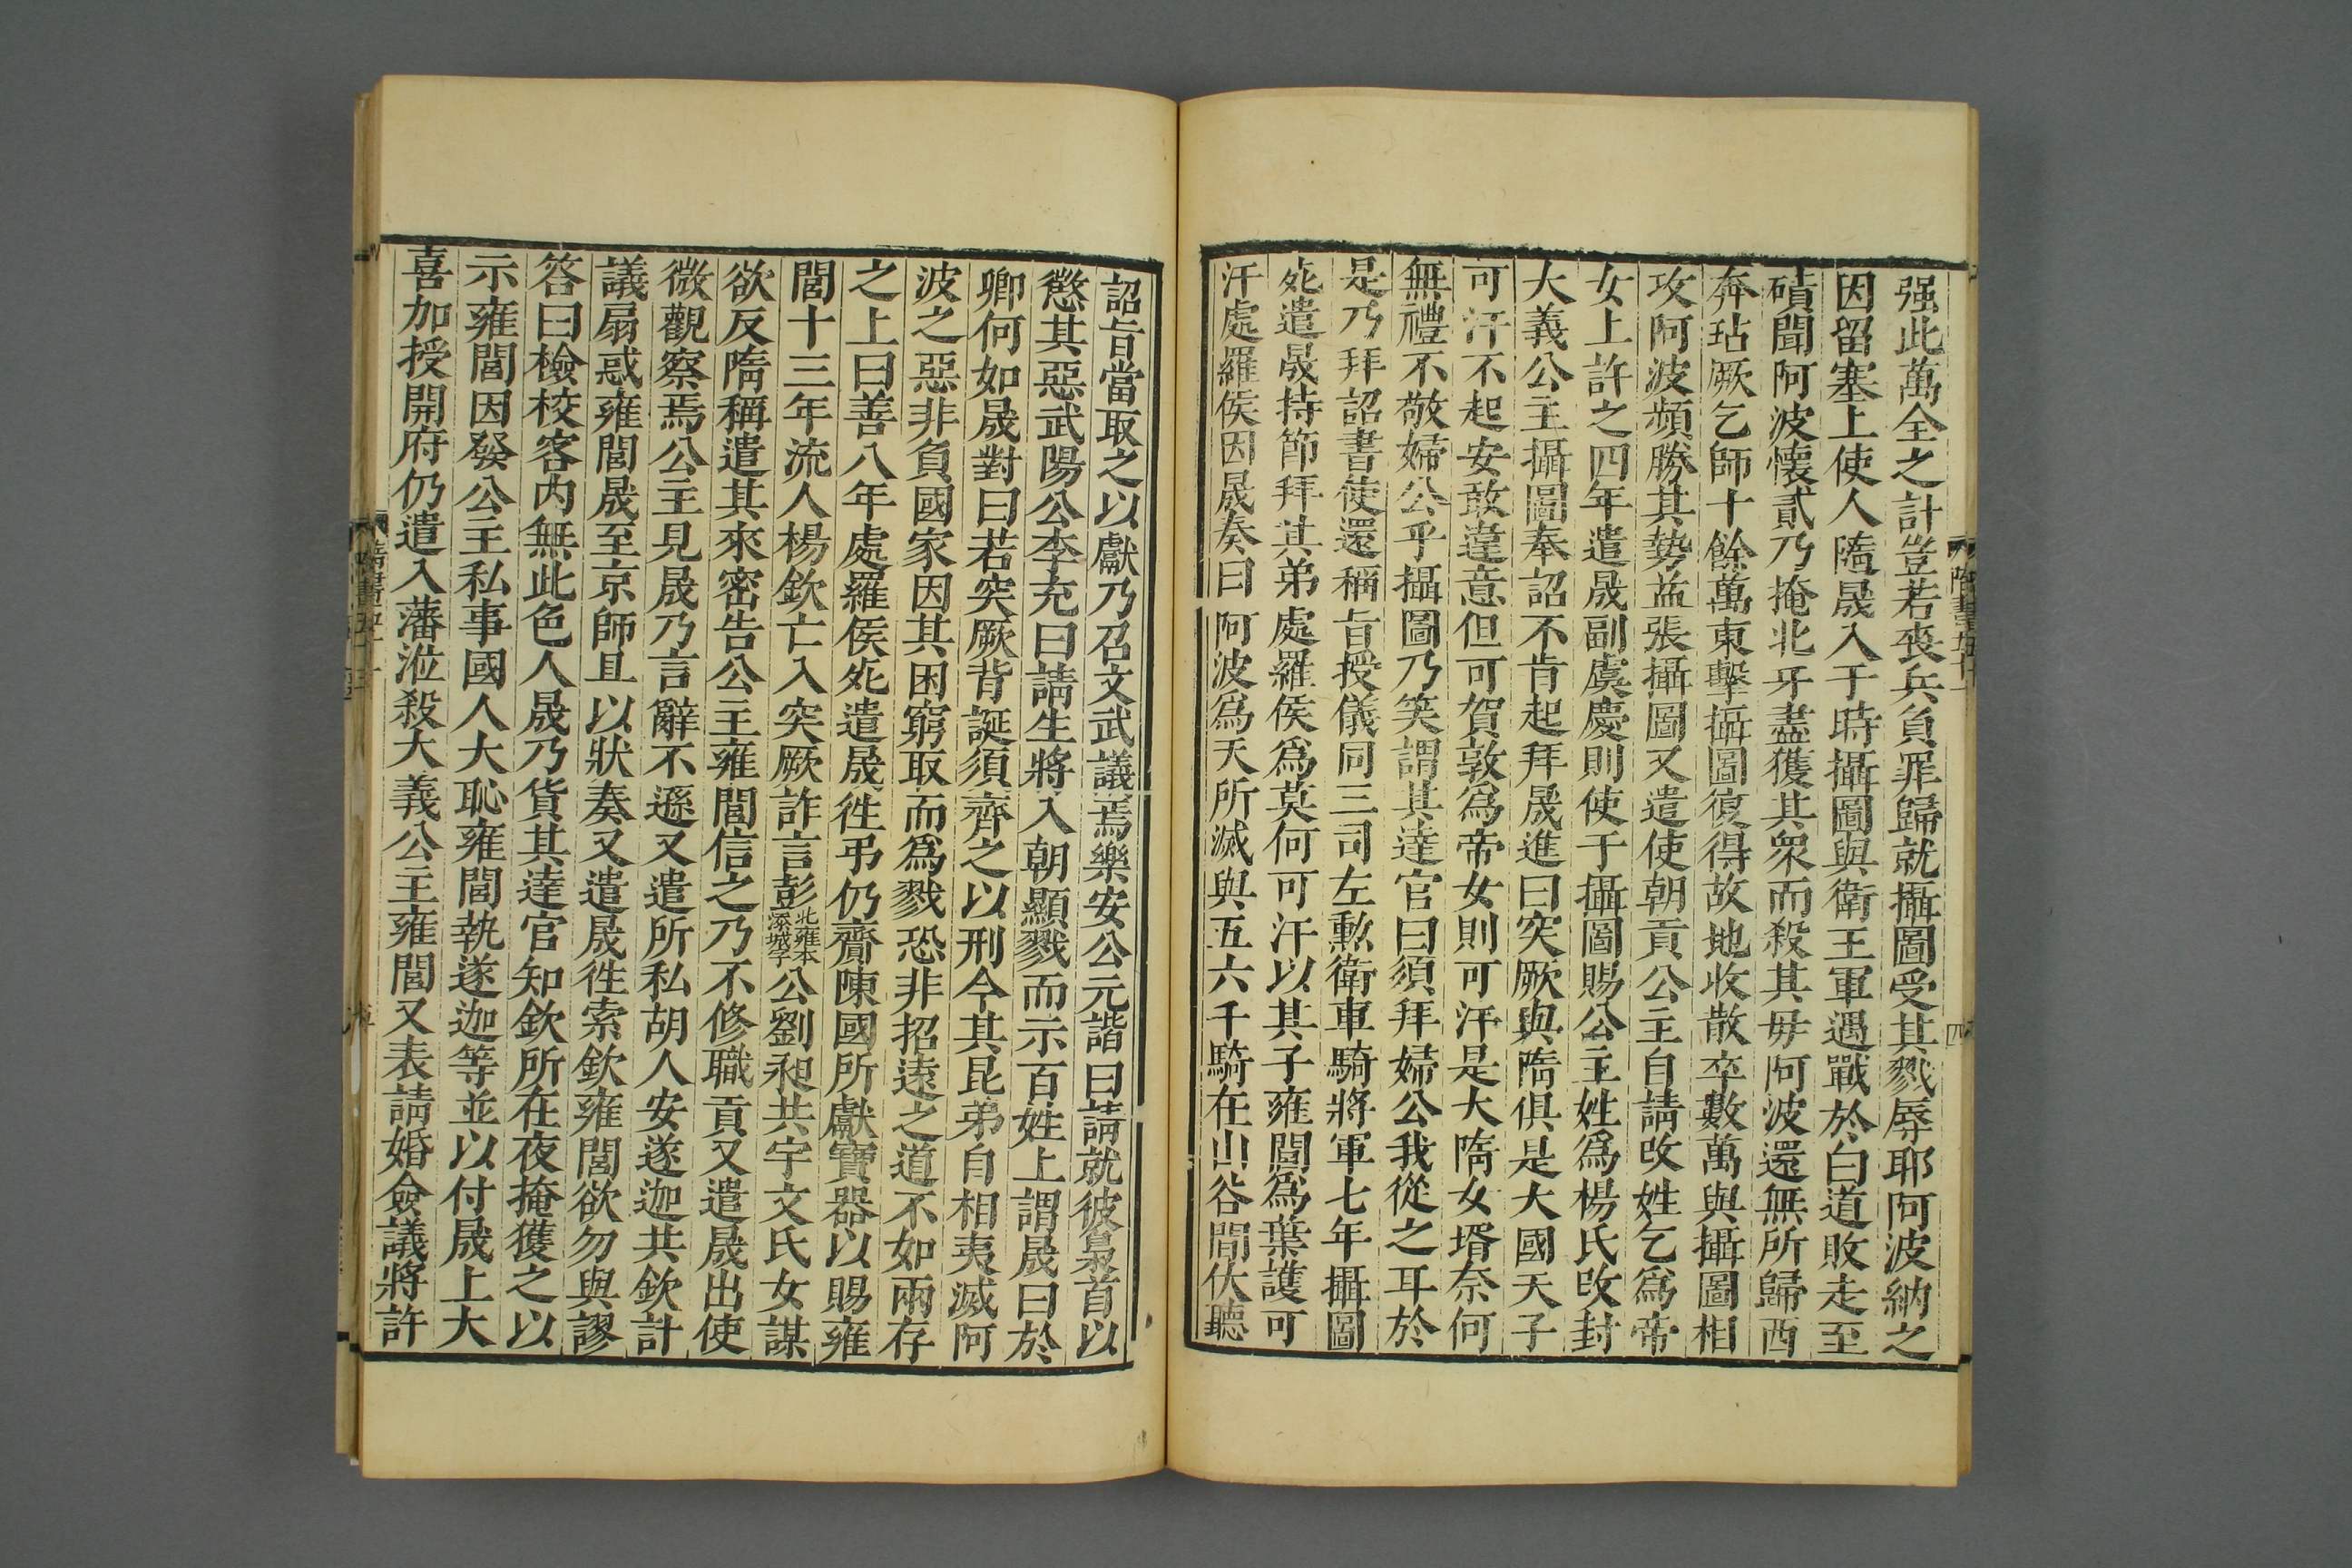 强此萬全之計豈若喪兵負罪歸就攝圖受其戮辱耶阿波納之
因留塞上使人隨晟入于時攝圖與衛王軍遇戰於白道敗走至
磧聞阿波懷貳乃掩北牙盡獲其衆而殺其毋阿波還無所歸西
奔玷厥乞師十餘萬東擊攝圖復得故地收散卒數萬與攝圖相
攻阿波頻勝其勢益張攝圖又遣使朝貢公主自請改姓乞爲帝
女上許之四年遣晟副虞慶則使于攝圖賜公主姓爲楊氏改封
大義公主攝圖奉詔不肯起拜晟進曰突厥與隋俱是大國天子
可汗不起安敢違意但可賀敦爲帝女則可汗是大隋女壻奈何
無禮不敬婦公乎攝圖乃笑謂其達官曰須拜婦公我從之耳於
是乃拜詔書使還稱旨授儀同三司左勲衛車騎將軍七年攝圖
死遣晟持節拜其弟處羅侯爲莫何可汗以其子雍閭爲葉護可
汗處羅侯因晟奏曰阿波爲天所滅與五六千騎在山谷間伏聽
詔旨當取之以獻乃召文武議焉樂安公元諧曰請就彼梟首以
懲其惡武陽公李充曰請生將入朝顯戮而示百姓上謂晟曰於
卿何如晟對曰若突厥背誕須齊之以刑今其昆弟自相夷滅阿
波之惡非負國家因其困窮取而爲戮恐非招遠之道不如兩存
之上曰善八年處羅侯死遣晟徃弔仍齎陳國所獻寶器以賜雍
閭十三年流人楊欽亡入突厥詐言彭北雍本添城字公劉昶共宇文氏女謀
欲反隋稱遣其來密告公主雍閭信之乃不修職貢又遣晟出使
微觀察焉公主見晟乃言辭不遜又遣所私胡人安遂迦共欽計
議扇惑雍閭晟至京師且以狀奏又遣晟徃索欽雍閭欲勿與謬
答曰檢校客内無此色人晟乃貨其達官知欽所在夜掩獲之以
示雍閭因發公主私事國人大恥雍閭執遂迦等並以付晟上大
喜加授開府仍遣入藩涖殺大義公主雍閭又表請婚僉議將許